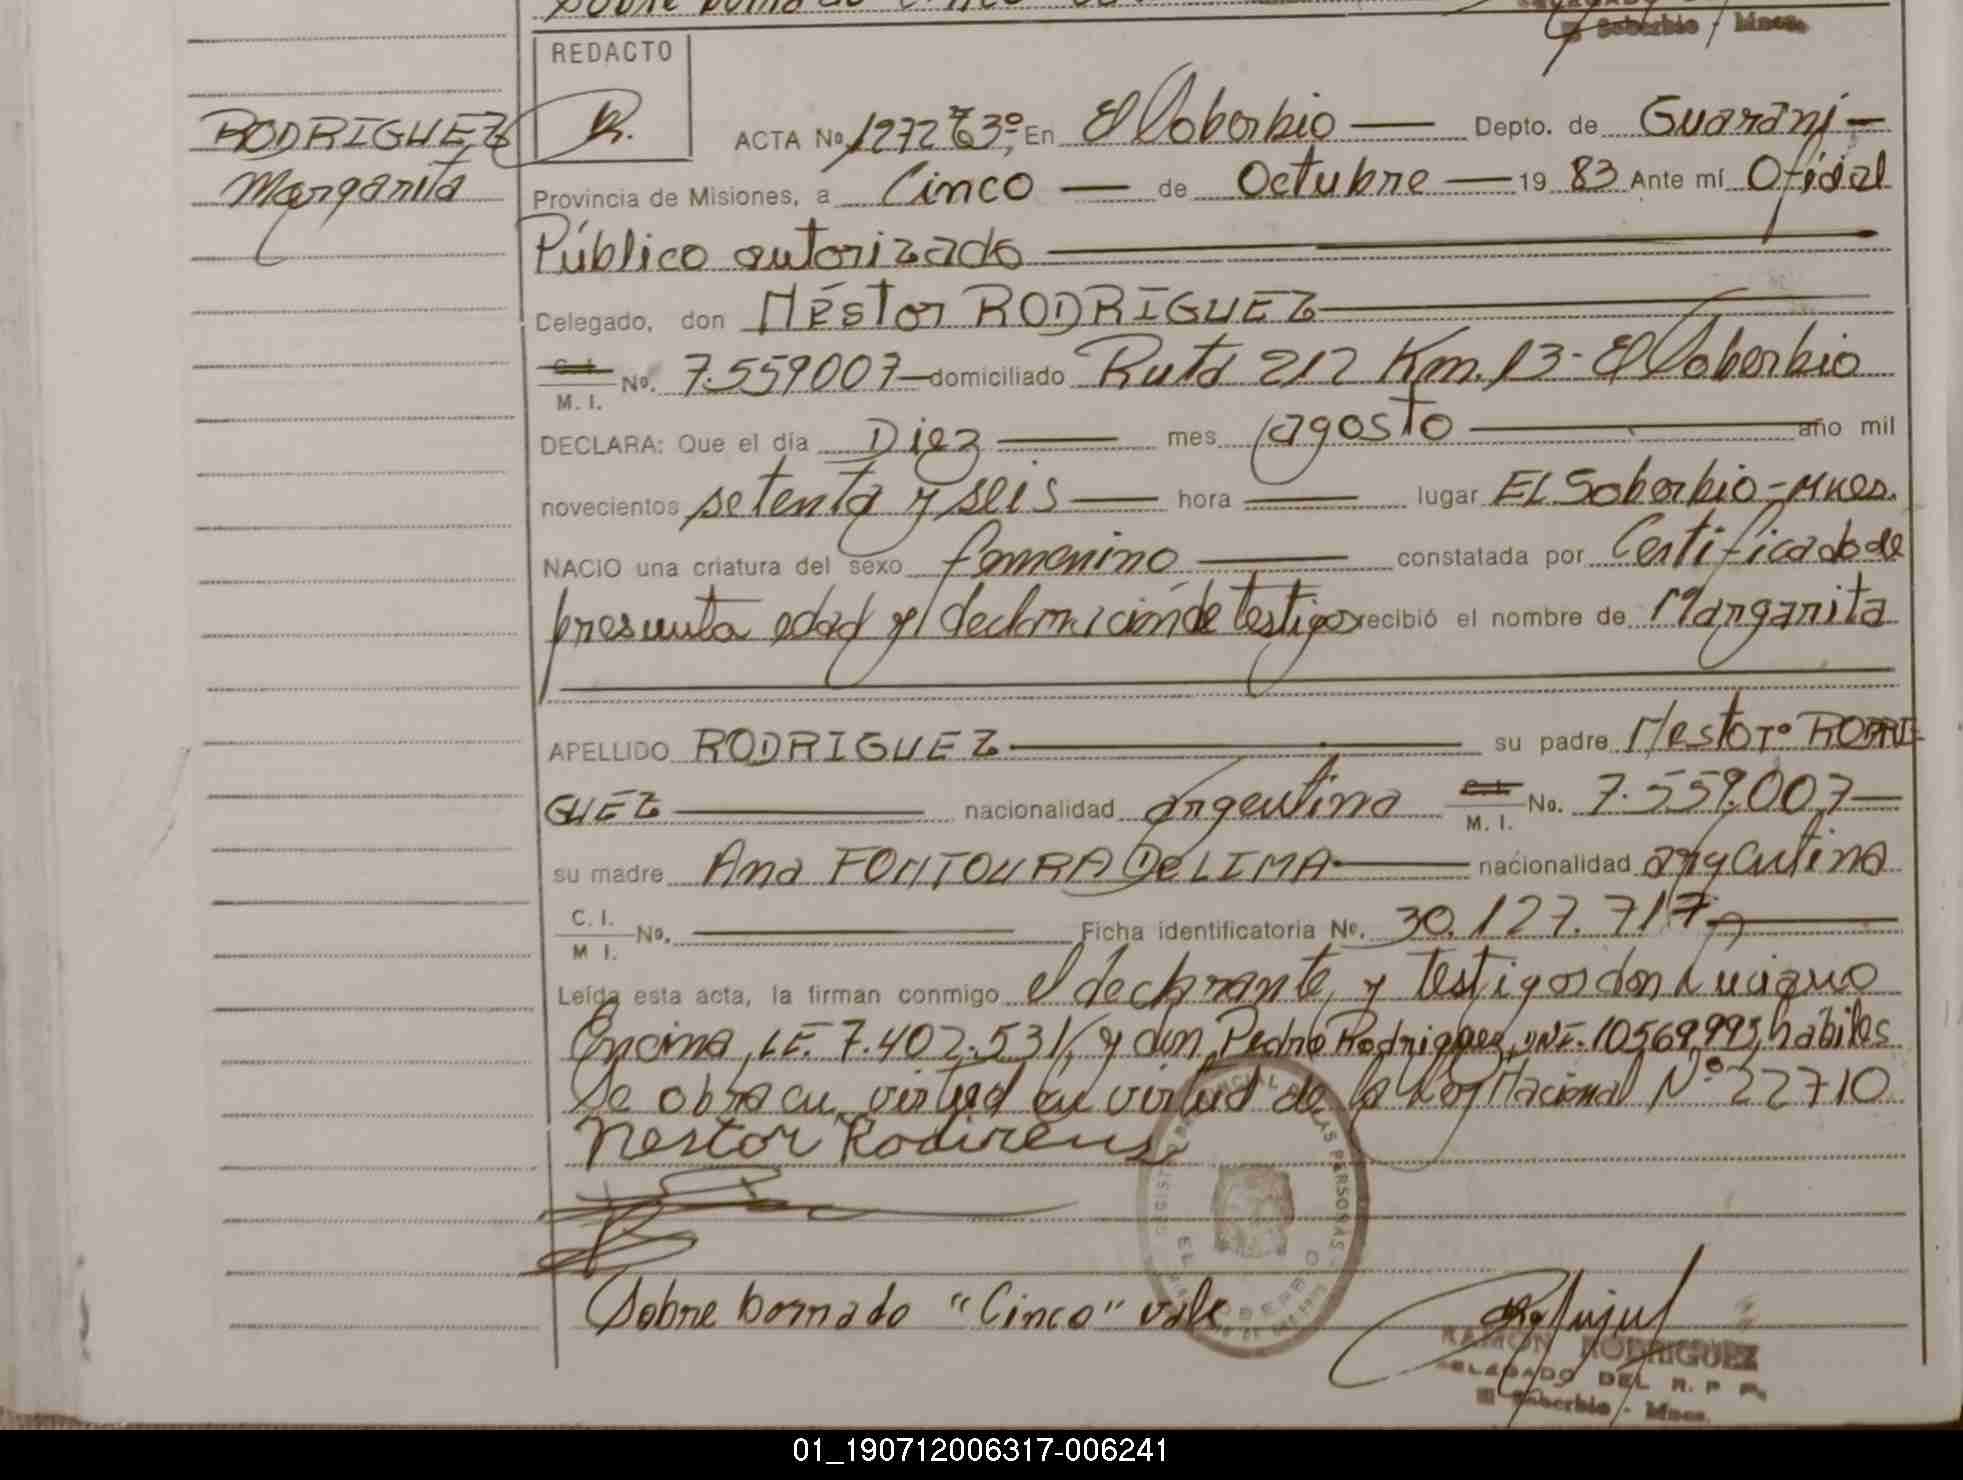 Sobre borrado Cinco vale
El Soberbio - Mnes.
REDACTO
R.
RODRIGUEZ
Margarita
ACTA No 1272 T 3º, En El Soberbio — Depto. de Guaraní —
Provincia de Misiones, a Cinco — de Octubre — 19 83 Ante mí Oficial
Público autorizado
Delegado, don Néstor RODRIGUEZ
C. I.
M. I. No. 7.559007 — domiciliado Ruta 212 Km. 13 - El Soberbio
DECLARA: Que el día Diez — mes agosto — año mil
novecientos setenta y seis — hora — lugar EL Soberbio - Mnes.
NACIO una criatura del sexo femenino — constatada por Certificado de
presunta edad y declaración de testigos recibió el nombre de Margarita
APELLIDO RODRIGUEZ — su padre Nestor RODRI
GUEZ — nacionalidad argentina C. I.
M. I. No. 7.559.007 —
su madre Ana FONTOURA DE LIMA — nacionalidad argentina
C. I.
M I. No. — Ficha identificatoria No. 30.127.717 —
Leída esta acta, la firman conmigo el declarante, y testigos don Luciano
Encina, LE. 7.402.531, y don Pedro Rodriguez, DNI. 10569,995, habiles
Se obra en virtud en virtud de la Ley Nacional Nº 22710
nestor
REGISTRO PROVINCIAL DE LAS PERSONAS
EL SOBERBIO
Sobre borrado "Cinco" vale
RAMON RODRIGUEZ
DELEGADO DEL R. P. P.
El Soberbio - Mnes.
01_190712006317-006241